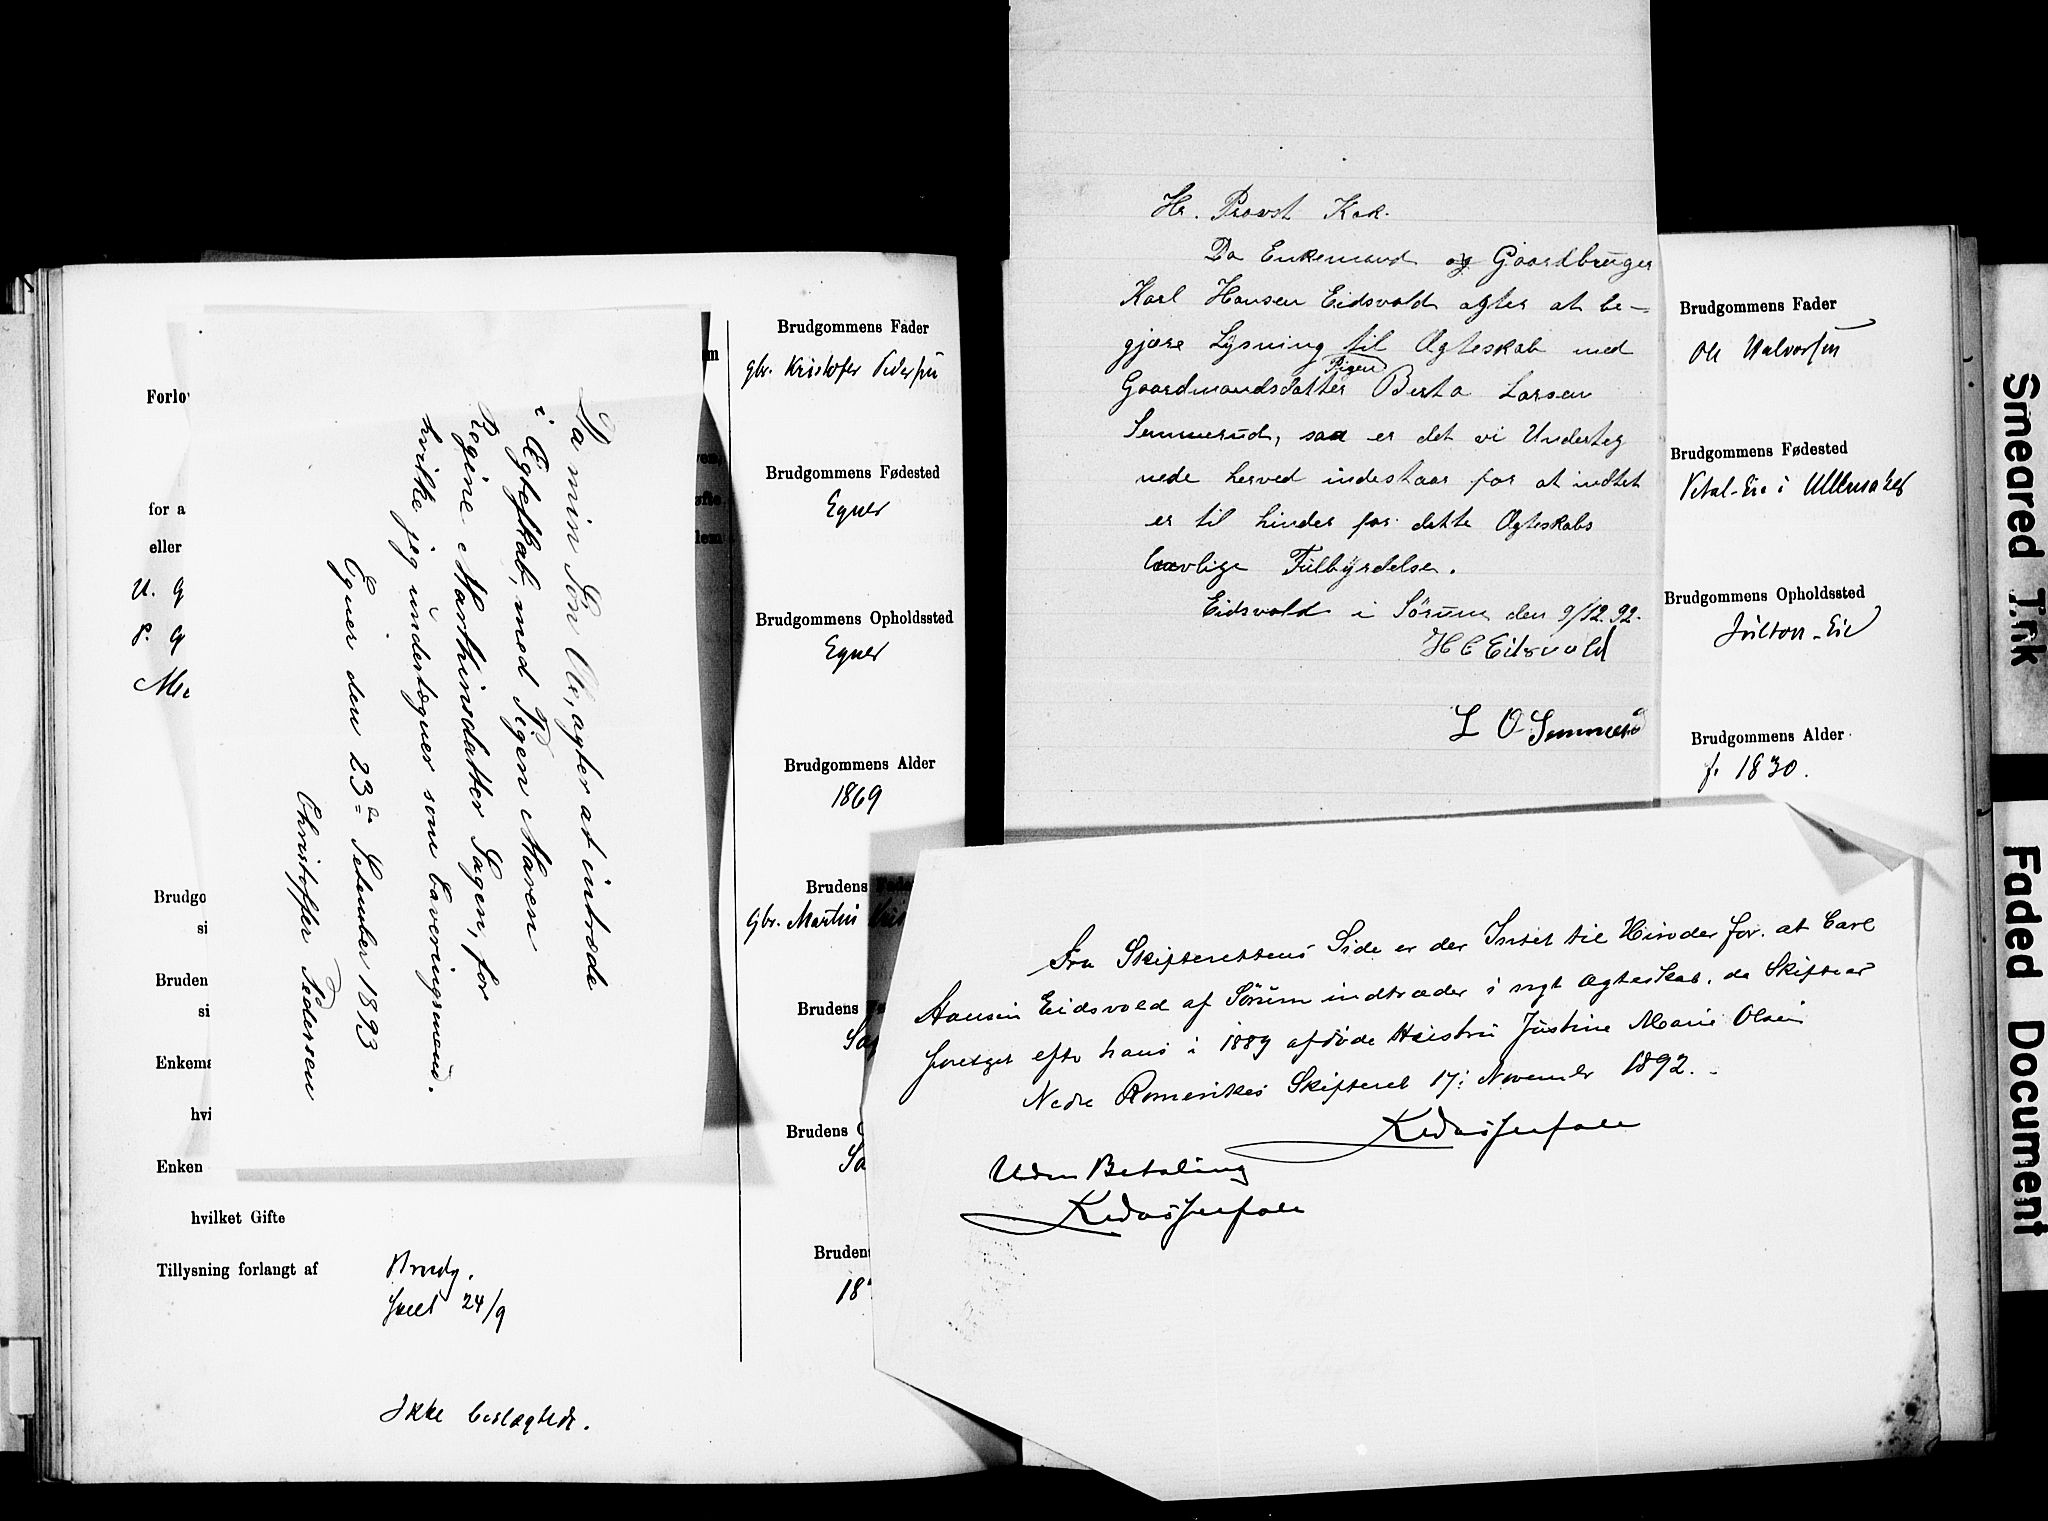 Forlo
for a
eller
U. G
P. G
Brudgo
si
Bruden
si
Enkema
hvi
Enken
hvilket Gifte
Tillysning forlangt af
Brudg.
24/9
Ikke beslægtede.
Da min Søn Ole, agter at intræde
i Ægteskab, med Pigen Maren
Regine Marthinsdatter Sagen, for
hvilke jeg undertegner som Caveringsmand.
Egner den 23de Setember 1893
Christoffer Pedersen
Brudgommens Fader
gbr. Kristofer Pedersen
Brudgommens Fødested
Egner
Brudgommens Opholdssted
Egner
Brudgommens Alder
1869
Brudens Fade
gbr. Martin
Brudens
Sag
Brudens O
Sa
Brudens
18
Hr. Provst Kok.
Da Enkemand og Gaardbruger
Karl Hansen Eidsvold agter at be-
gjære Lysning til Ægteskab med
Pigen
Gaardmandsdatter Berta Larsen
Semmerud, saa er det vi Underteg
nede herved indestaar for at indtet
er til hinder for dette Ægteskabs
lavlige Fulbyrdelse.
Eidsvold i Sørum den 9/12.92.
H C Eidsvold
L O Semmerud
Brudgommens Fader
Ole Halvorsen
Brudgommens Fødested
i Ullensaker
Brudgommens Opholdssted
Brudgommens Alder
f. 1830.
Fra Skifterettens Side er der Intet til Hinder for, at Carl
Hansen Eidsvold af Sørum indtræder i nyt Ægteskab, da Skifte er
foretaget efter hans i 1889 afdøde Hustru Justine Marie Olsen
Nedre Romerikes Skifteret 17: November 1892.
Uden Betaling
Smeared Trk
Faded Document